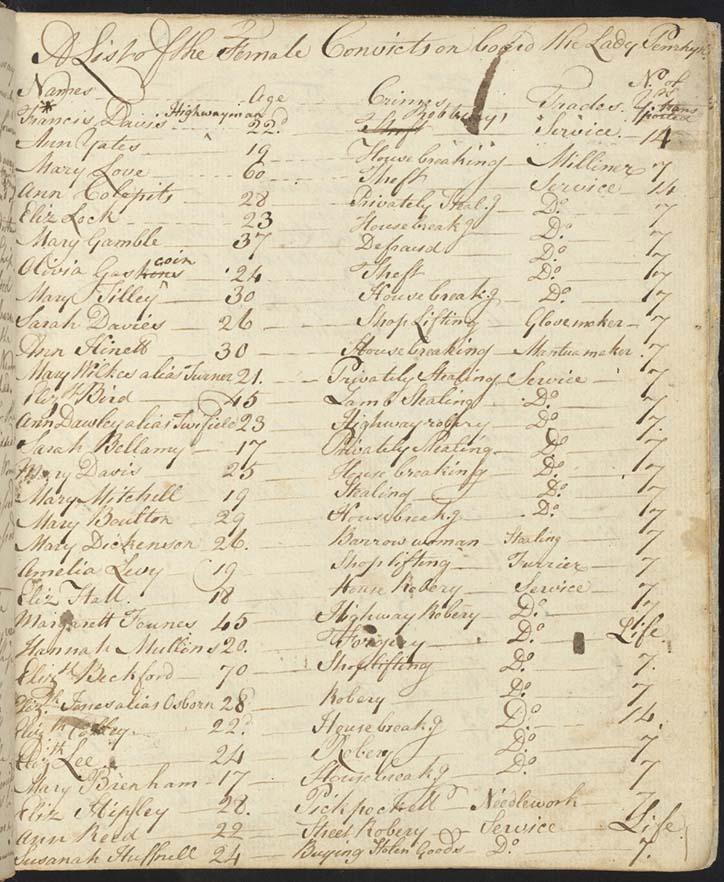 A List of the Female Convicts on board the Lady Penrhyn
Names Age Crimes Trades. No. of yrs transported
* Francis Davis Highwayman 22d Theft Robbery Service 14
Ann Yates 19 House breaking Milliner 7
Mary Love 60 Theft Service 14
Ann Colepits 28 Privately Steal.g Do. 7
Eliz Lock 23 Housebreak.g Do. 7
Mary Gamble 37 Defraud Do. 7
Olivia Gaskins coin 24 Theft Do. 7
Mary Tilley 30 Housebreak.g Do. 7
Sarah Davies 26 Shop Lifting Glovemaker 7
Ann Hinett 30 House breaking Mantua maker 7
Mary Wilkes alias Turner 21. Privately Stealing Service 7
Elizth Bird 45 Lamb Stealing Do. 7
Ann Dawley alias Twifield 23 Highway robery Do. 7
Sarah Bellamy 17 Privately Stealing Do. 7
Mary Davis 25 House breaking Do. 7
Mary Mitchell 19 Stealing Do. 7
Mary Boulton 29 Housebreakg Do. 7
Mary Dickenson 26. Barrow woman Stealing 7
Amelia Levy 19 Shop lifting Furrier 7
Eliz Hall. 18 House Robery Service 7
Margarett Fownes 45 Highway Robery Do. Life
Hannah Mullins 20. Forgery Do. 7.
Elizth Beckford 70 Shoplifting Do. 7
Elizth Jones alias Osborn 28 Robery Do. 14.
Elizth 22d Housebreakg Do. 7
Elizth Lee 24 Robery Do. 7
Mary Brenham 17 Housebreakg Do. 7
Eliz Hipsley 28. Pickpockett Needlework 7
Ann Reed 22 Street Robery Service Life
Susanah Huffnell 24 Buying Stolen Goods Do. 7.